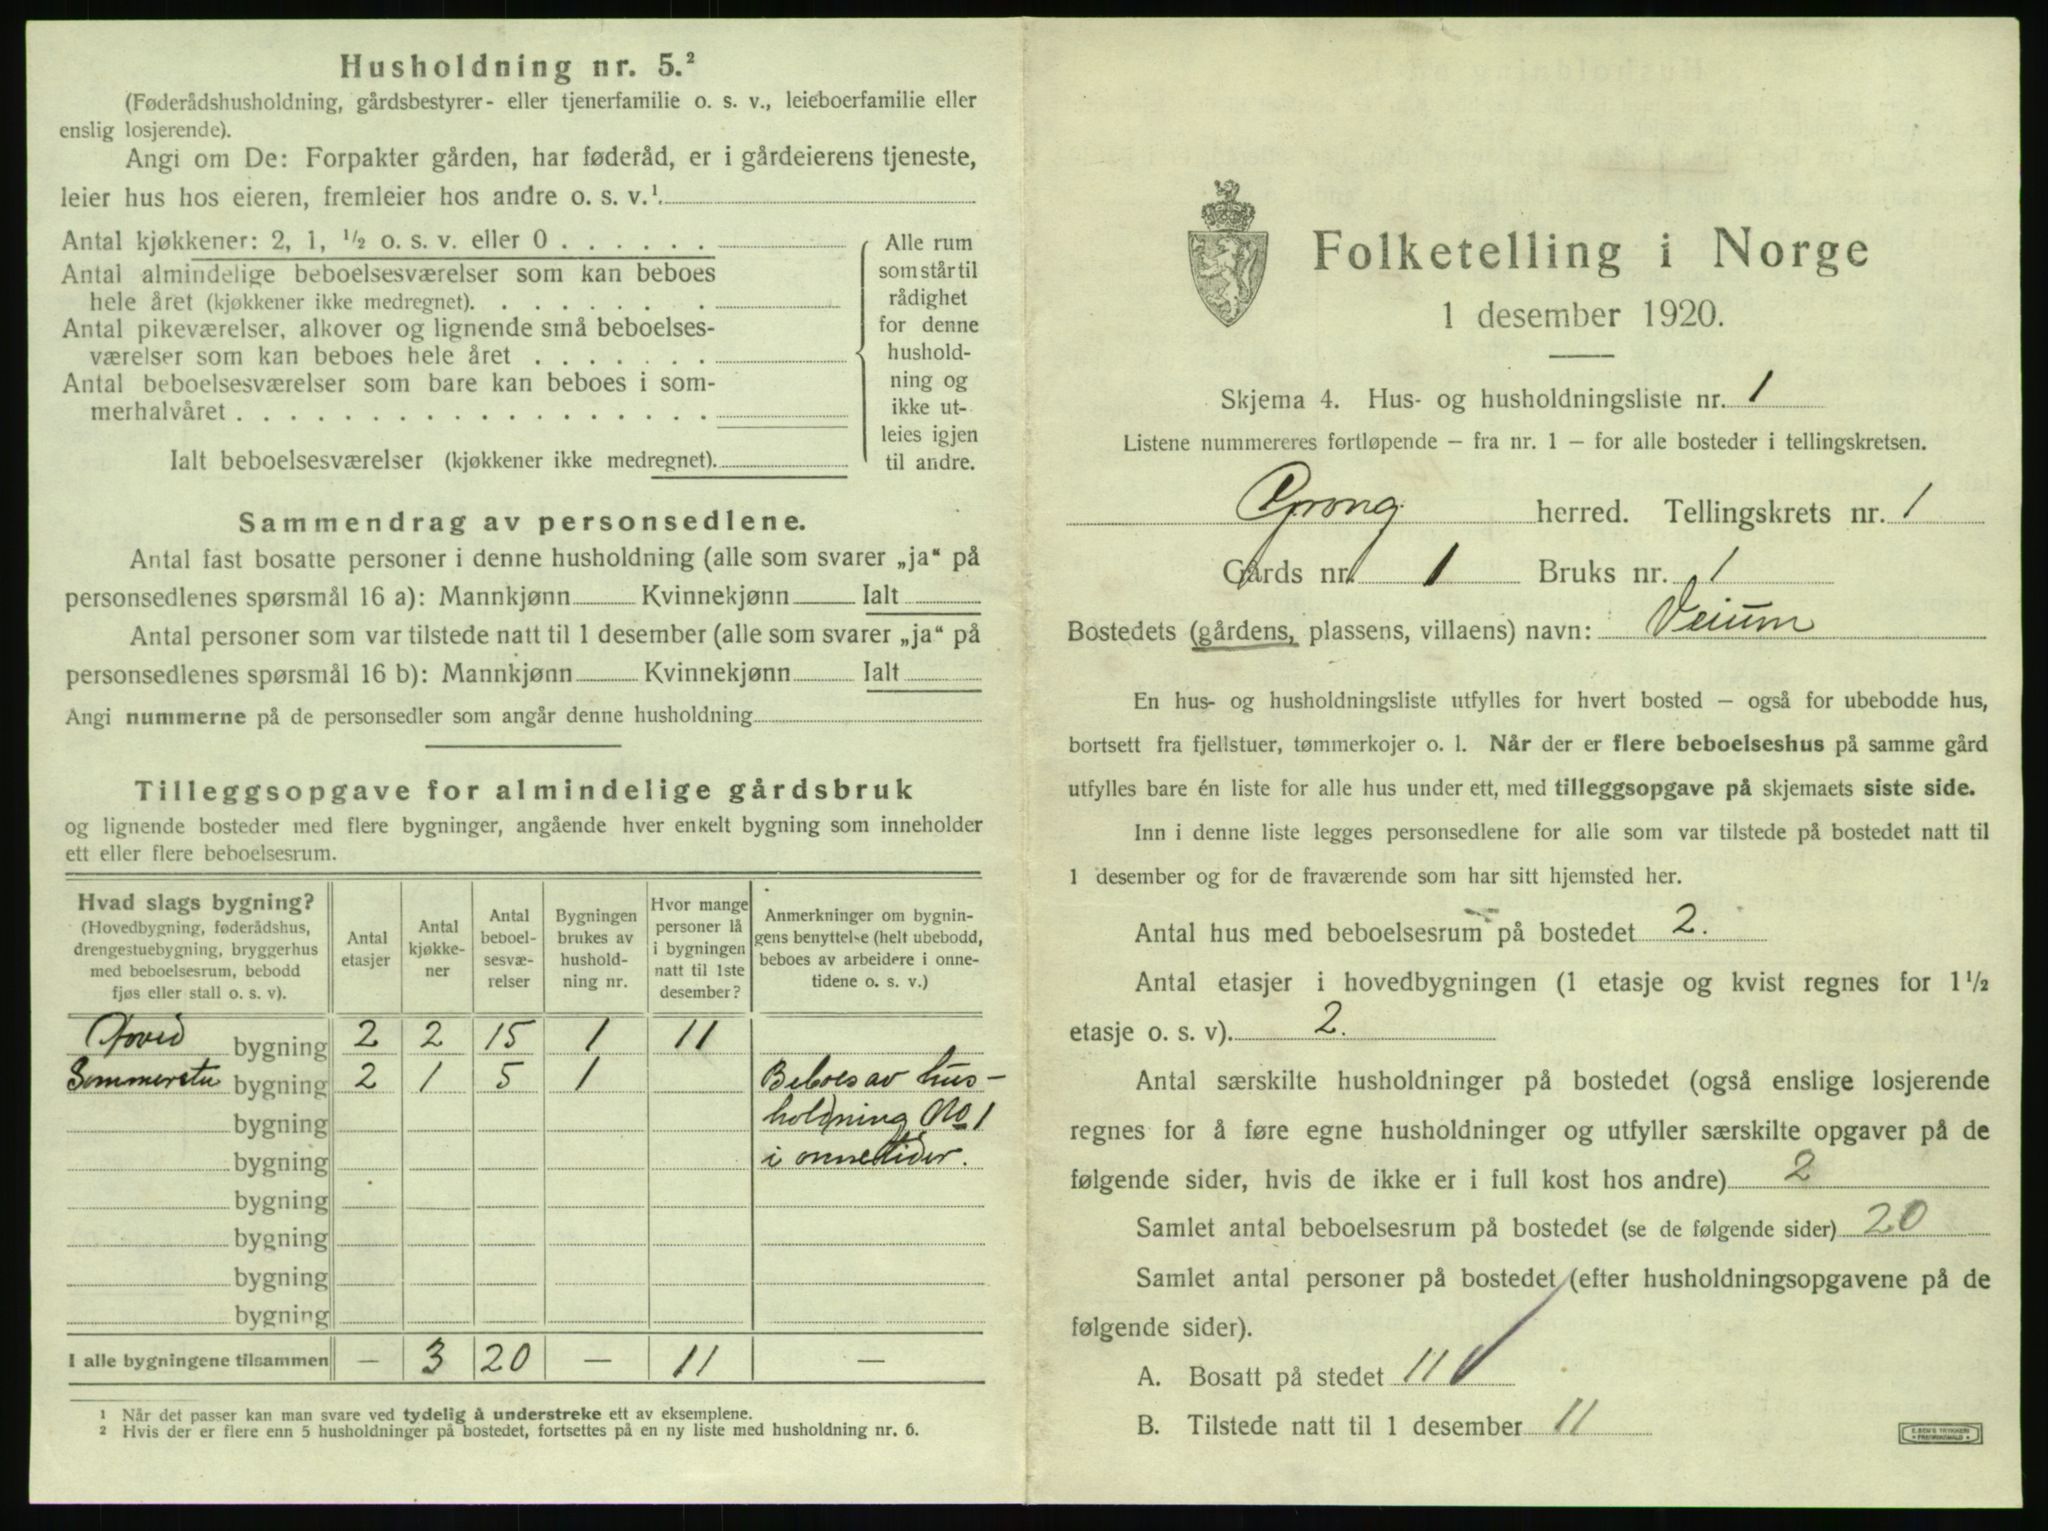 Husholdning nr. 5.²
(Føderådshusholdning, gårdsbestyrer- eller tjenerfamilie o. s. v., leieboerfamilie eller
enslig losjerende).
Angi om De: Forpakter gården, har føderåd, er i gårdeierens tjeneste,
leier hus hos eieren, fremleier hos andre o. s. v.¹
Antal kjøkkener: 2, 1, ½ o. s. v. eller 0 . . . . . .
Antal almindelige beboelsesværelser som kan beboes
hele året (kjøkkener ikke medregnet). . . . . . . .
Antal pikeværelser, alkover og lignende små beboelses-
værelser som kan beboes hele året . . . . . . .
Antal beboelsesværelser som bare kan beboes i som-
merhalvåret . . . . . . . . . . . . . . . . . .
Ialt beboelsesværelser (kjøkkener ikke medregnet).
Alle rum
som står til
rådighet
for denne
hushold-
ning og
ikke ut-
leies igjen
til andre.
Sammendrag av personsedlene.
Antal fast bosatte personer i denne husholdning (alle som svarer „ja“ på
personsedlenes spørsmål 16 a): Mannkjønn Kvinnekjønn Ialt
Antal personer som var tilstede natt til 1 desember (alle som svarer „ja“ på
personsedlenes spørsmål 16 b): Mannkjønn Kvinnekjønn Ialt
Angi nummerne på de personsedler som angår denne husholdning
Tilleggsopgave for almindelige gårdsbruk
og lignende bosteder med flere bygninger, angående hver enkelt bygning som inneholder
ett eller flere beboelsesrum.
Hvad slags bygning?
(Hovedbygning, føderådshus,
drengestuebygning, bryggerhus
med beboelsesrum, bebodd
fjøs eller stall o. s. v).
Antal
etasjer
Antal
kjøkke-
ner
Antal
beboel-
sesvæ-
relser
Bygningen
brukes av
hushold-
ning nr.
Hvor mange
personer lå
i bygningen
natt til 1ste
desember?
Anmerkninger om bygnin-
gens benyttelse (helt ubebodd,
beboes av arbeidere i onne-
tidene o. s. v.)
Hoved bygning 2 2 15 1 11
Sommerstu bygning 2 1 5 1 Beboes av hus-
bygning holdning No 1
bygning i onnetider.
bygning
bygning
bygning
bygning
I alle bygningene tilsammen — 3 20 — 11 —
¹ Når det passer kan man svare ved tydelig å understreke ett av eksemplene.
² Hvis der er flere enn 5 husholdninger på bostedet, fortsettes på en ny liste med husholdning nr. 6.
Folketelling i Norge
1 desember 1920.
Skjema 4. Hus- og husholdningsliste nr. 1
Listene nummereres fortløpende – fra nr. 1 – for alle bosteder i tellingskretsen.
Grong herred. Tellingskrets nr. 1
Gårds nr. 1 Bruks nr. 1
Bostedets (gårdens, plassens, villaens) navn: Veium
En hus- og husholdningsliste utfylles for hvert bosted – også for ubebodde hus,
bortsett fra fjellstuer, tømmerkojer o. l. Når der er flere beboelseshus på samme gård
utfylles bare én liste for alle hus under ett, med tilleggsopgave på skjemaets siste side.
Inn i denne liste legges personsedlene for alle som var tilstede på bostedet natt til
1 desember og for de fraværende som har sitt hjemsted her.
Antal hus med beboelsesrum på bostedet 2.
Antal etasjer i hovedbygningen (1 etasje og kvist regnes for 1½
etasje o. s. v). 2.
Antal særskilte husholdninger på bostedet (også enslige losjerende
regnes for å føre egne husholdninger og utfyller særskilte opgaver på de
følgende sider, hvis de ikke er i full kost hos andre) 2
Samlet antal beboelsesrum på bostedet (se de følgende sider) 20
Samlet antal personer på bostedet (efter husholdningsopgavene på de
følgende sider).
A. Bosatt på stedet 11
B. Tilstede natt til 1 desember 11